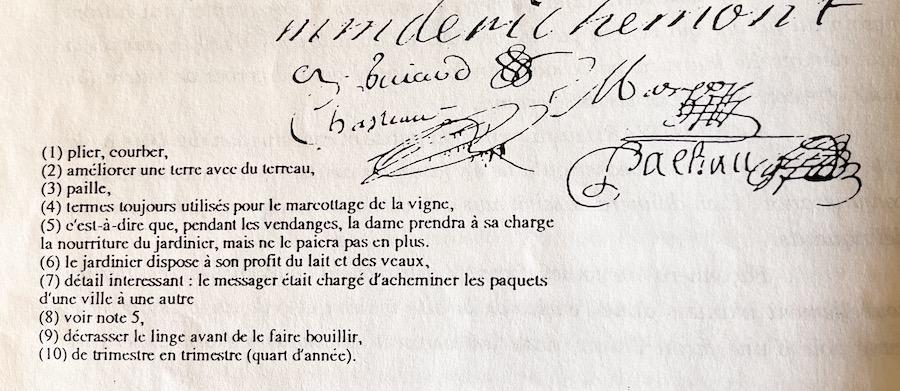 mmderichemont
Chasteau
(1) plier, courber,
(2) améliorer une terre avec du terreau,
(3) paille,
(4) termes toujours utilisés pour le marcottage de la vigne,
(5) c'est-à-dire que, pendant les vendanges, la dame prendra à sa charge
la nourriture du jardinier, mais ne le paiera pas en plus.
(6) le jardinier dispose à son profit du lait et des veaux,
(7) détail interessant : le messager était chargé d'acheminer les paquets
d'une ville à une autre
(8) voir note 5,
(9) décrasser le linge avant de le faire bouillir,
(10) de trimestre en trimestre (quart d'année).